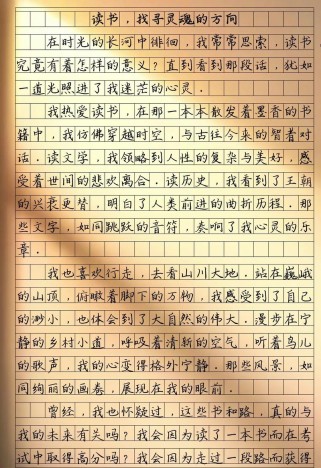 读书，找寻灵魂的方向
在时光的长河中徘徊，我常常思索，读书
究竟有着怎样的意义？直到看到那段话，犹如
一道光照进了我迷茫的心灵．
我热爱读书，在那一本本散发着墨香的书
籍中，我仿佛穿越时空，与古往今来的智者对
话．读文学，我领略到人性的复杂与美好，感
受着世间的悲欢离合．读历史，我看到了王朝
的兴衰更替，明白了人类前进的曲折历程．那
些文字，如同跳跃的音符，奏响了我心灵的乐
章．
我也喜欢行走，去看山川大地．站在巍峨
的山顶，俯瞰着脚下的万物，我感受到了自己
的渺小，也体会到了大自然的伟大．漫步在宁
静的乡村小道，呼吸着清新的空气，听着鸟儿
的歌声，我的心变得格外宁静．那些风景，如
同绚丽的画卷，展现在我的眼前．
曾经，我也怀疑过，这些书和路，真的与
我的未来有关吗？我会因为读了一本书而在考
试中取得高分吗？我会因为走过一段路而获得